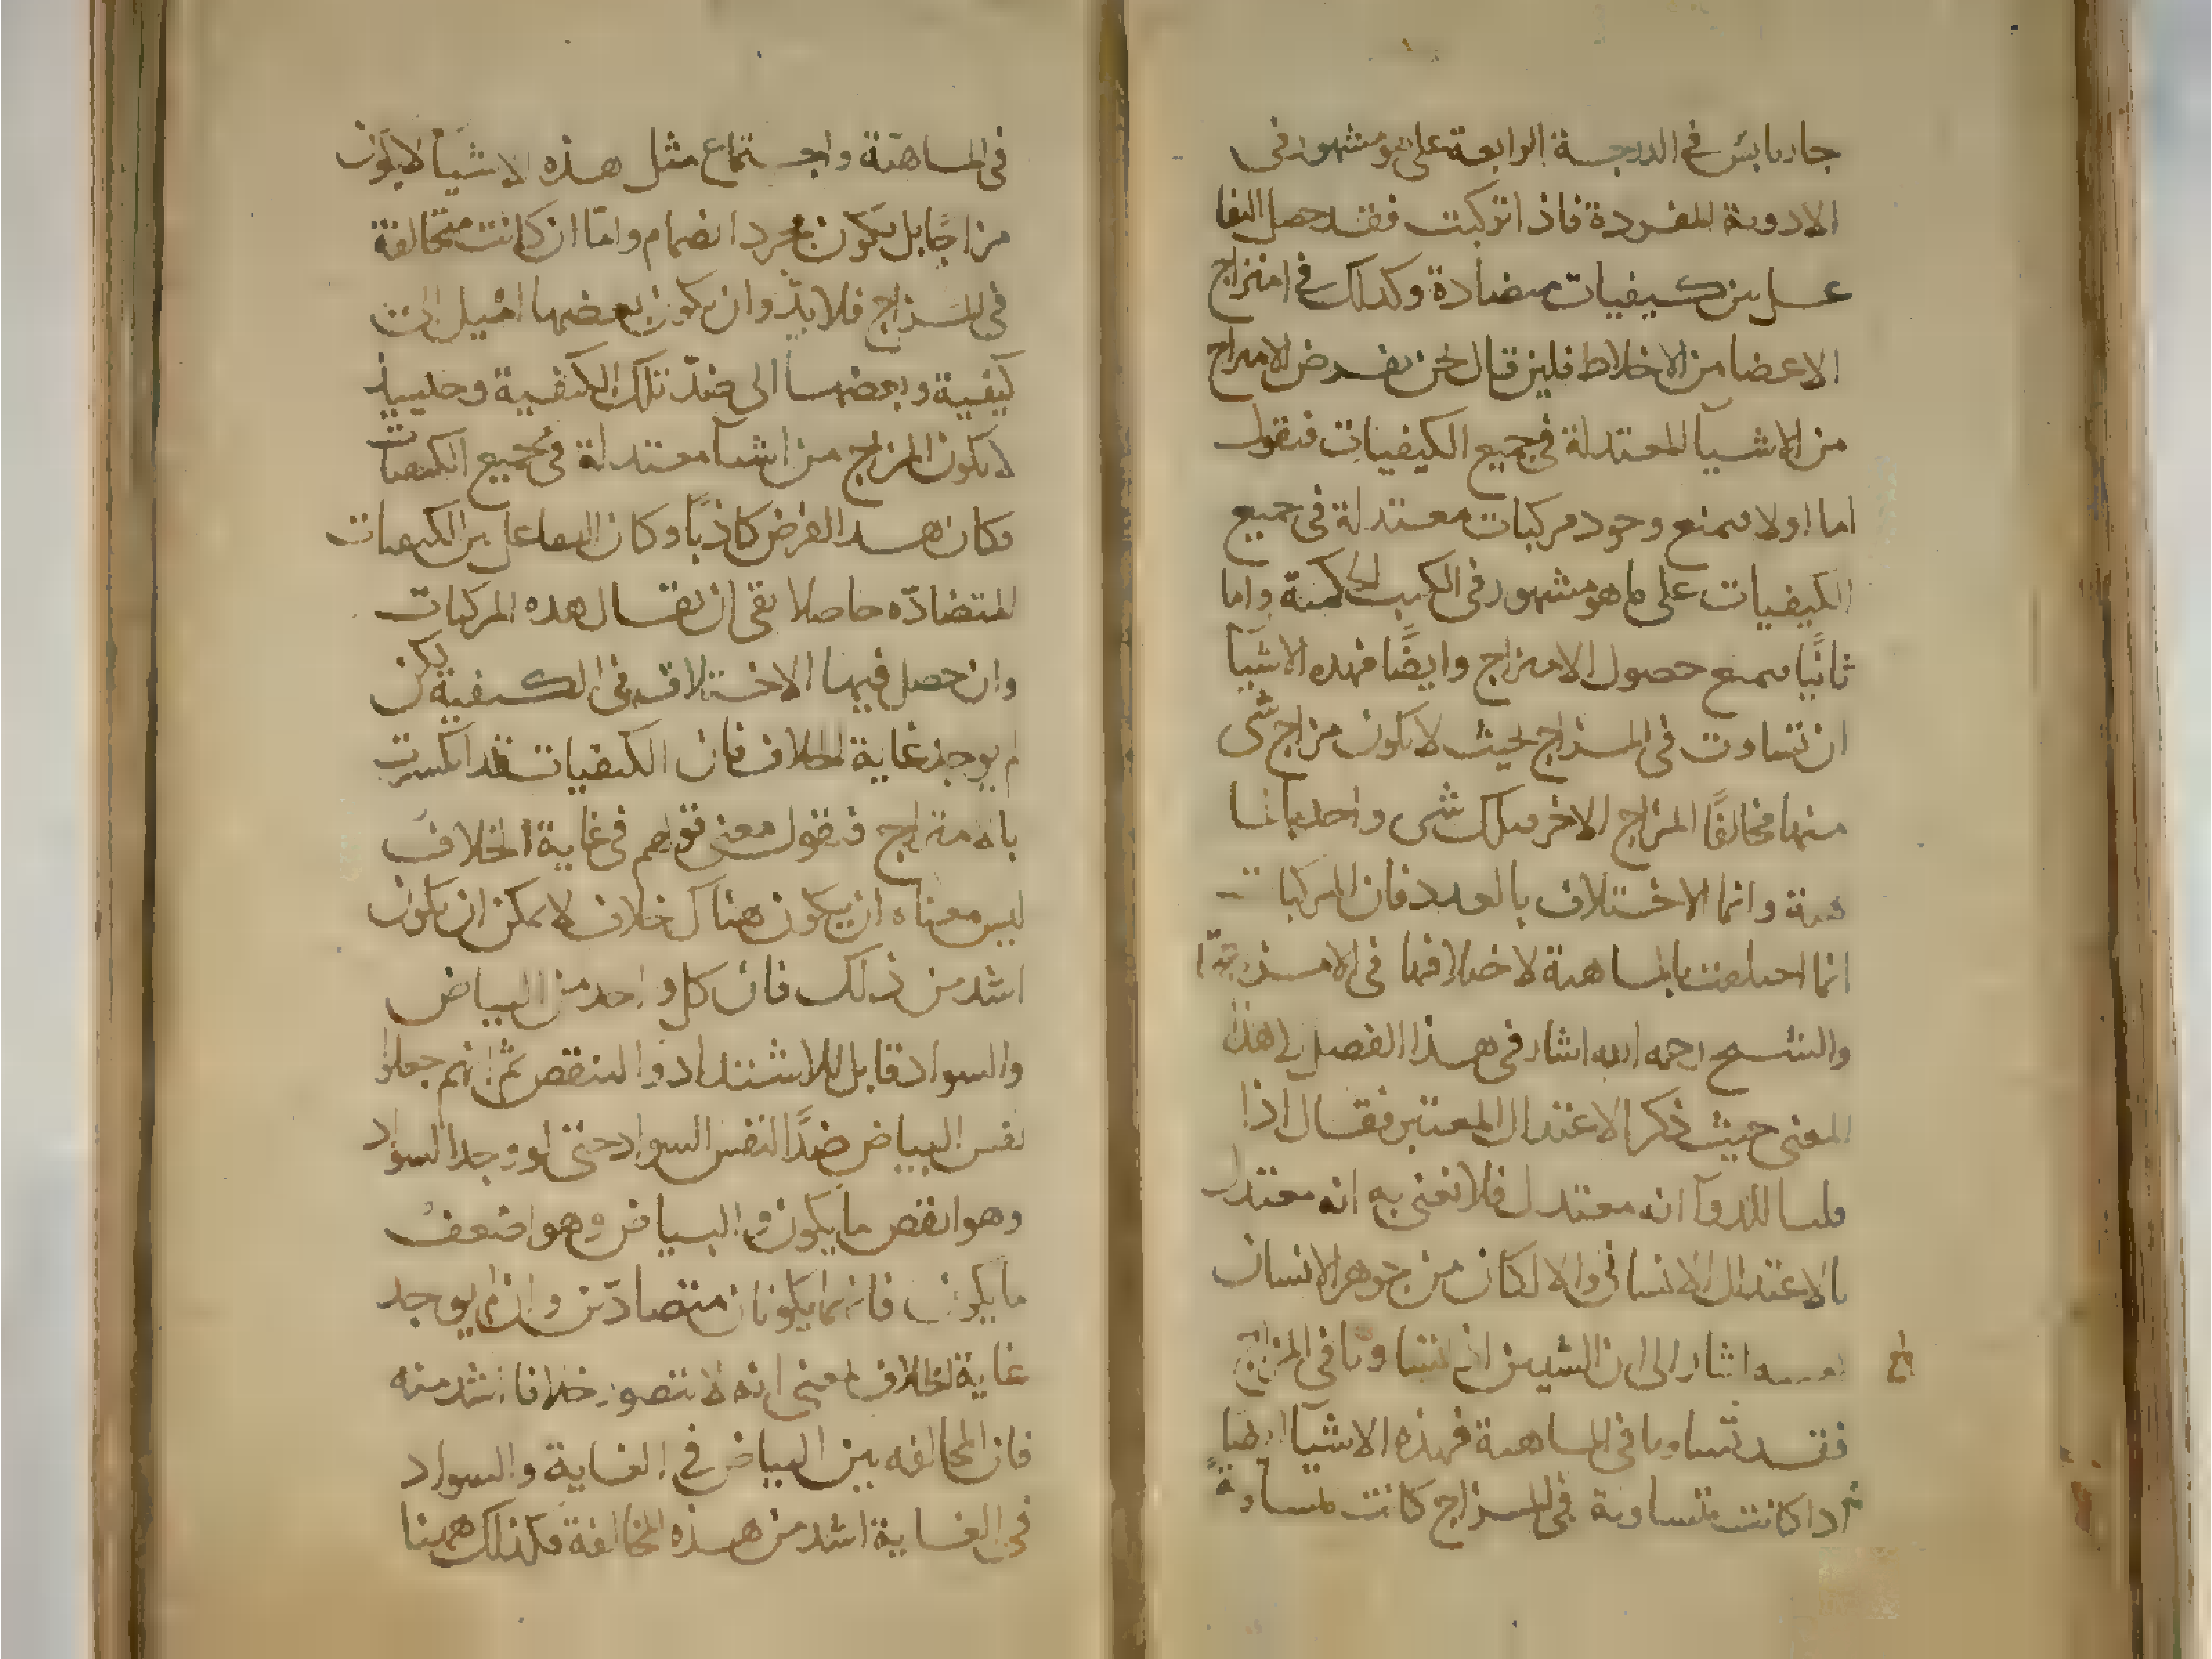 حار يابس في الدرجة الرابعة على هو مشهور في
الادوية المفردة فاذا تركبت فقد حصل التفا
عل بين كيفيات متضادة وكذلك في امتزاج
الاعضا من الاخلاط فلين قال نحن نفرض الامتزاج
من الاشيآ المعتدلة في جميع الكيفيات فنقول
اما اولا فيمنع وجود مركبات معتدلة في جميع
الكيفيات على ما هو مشهور في الكتب الحكمية واما
ثانيًا يمنع حصول الامتزاج وايضًا فهذه الاشيآ
ان تساوت في المزاج بحيث لا يكون مزاج شى
منها مخالفًا لمزاج الاخر فتلك شى واحد بالما
هية وانما الاختلاف بالعدد فان المركبات
انما اختلفت بالماهية لاختلافها في الامزجة
والشيخ رحمه الله اشار في هذا الفصل الى هذا
المعنى حيث ذكر الاعتدال المعتبر فقال اذا
قلنا للدوآ انه معتدل فلا نعنى به انه معتدل
بالاعتدال الانسانى والا لكان من جوهر الانسان
اشار الى ان الشيين اذا تساويا في المزاج
فقد تساويا في الماهية فهذه الاشيآ ايضا
اذا كانت متساوية في المزاج كانت متساوية
في الماهية واجتماع مثل هذه الاشيآ لا يكون
مزاجًا بل يكون مجرد انضمام واما ان كانت متخالفة
في المزاج فلا بد وان يكون بعضها اميل الى
كيفية وبعضها الى ضد تلك الكيفية وحينيذ
لا يكون المزاج من اشيآ معتدلة في جميع الكيفيات
فكان هذا الفرض كاذبًا وكان التفاعل بين الكيفيات
المتضادّه حاصلا بقى ان يقال هذه المركبات
وان حصل فيها الاختلاف في الكيفية لكن
لم يوجد غاية الخلاف فان الكيفيات قد انكسرت
بالامتزاج فنقول معنى قولهم في غاية الخلاف
ليس معناه ان يكون هناك خلاف لا يمكن ان يكون
اشد من ذلك فان كل واحد من البياض
والسواد قابل للاشتداد والتنقص ثم انهم جعلوا
نفس البياض ضدًا لنفس السواد حتى لو وجد السواد
وهو انقص ما يكون والبياض وهو اضعف
ما يكون فانهما يكونان متضادّين وان لم يوجد
غاية الخلاف بمعنى انه لا نتصور خلافا اشد منه
فان المخالفه بين البياض في الغاية والسواد
في الغاية اشد من هذه المخالفة فكذلك ههنا